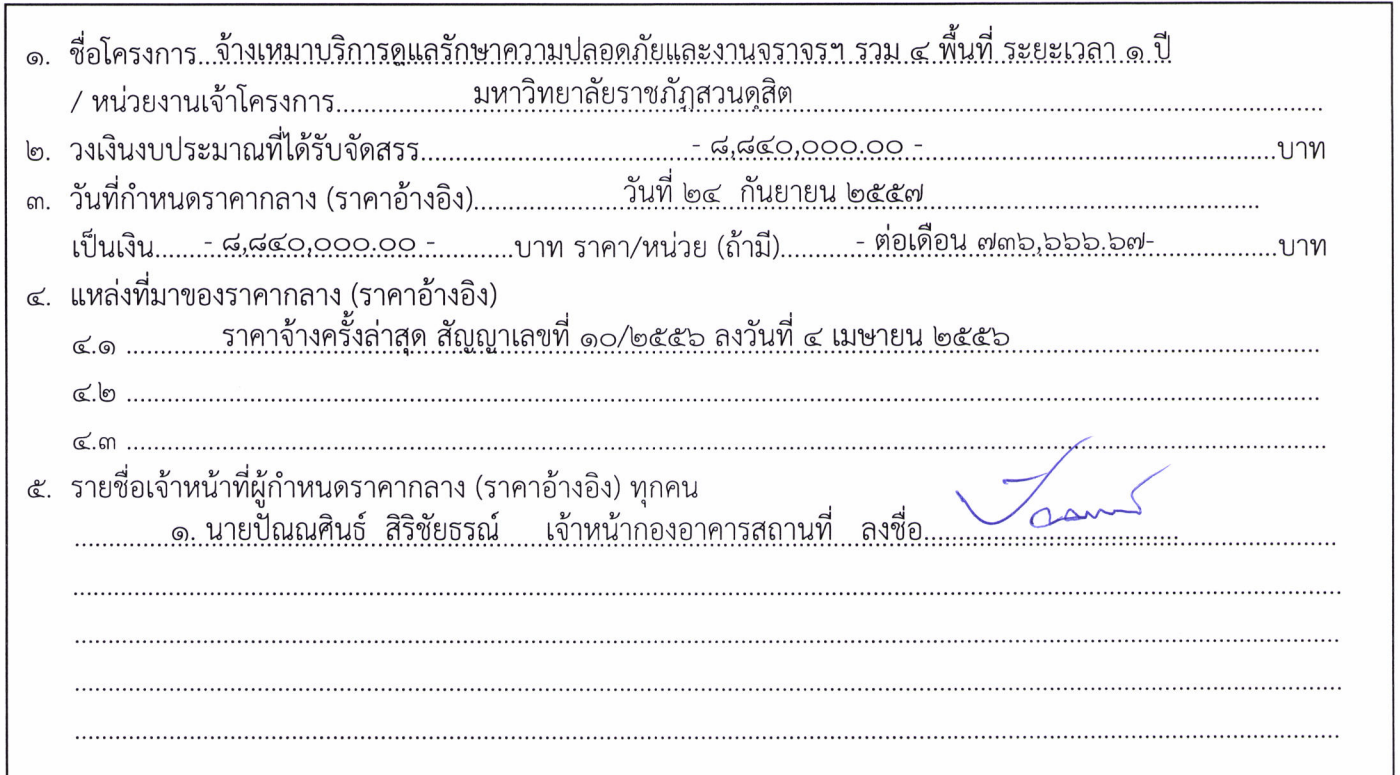 ๑. ชื่อโครงการ...จ้างเหมาบริการดูแลรักษาความปลอดภัยและงานจราจรฯ รวม ๔ พื้นที่ ระยะเวลา ๑ ปี
/ หน่วยงานเจ้าโครงการ....................มหาวิทยาลัยราชภัฏสวนดุสิต....................
๒. วงเงินงบประมาณที่ได้รับจัดสรร....................- ๘,๘๔๐,๐๐๐.๐๐ -....................บาท
๓. วันที่กำหนดราคากลาง (ราคาอ้างอิง)....................วันที่ ๒๔ กันยายน ๒๕๕๗....................
เป็นเงิน.......- ๘,๘๔๐,๐๐๐.๐๐ -...........บาท ราคา/หน่วย (ถ้ามี)...........- ต่อเดือน ๗๓๖,๖๖๖.๖๗-..................บาท
๔. แหล่งที่มาของราคากลาง (ราคาอ้างอิง)
๔.๑ ..............ราคาจ้างครั้งล่าสุด สัญญาเลขที่ ๑๐/๒๕๕๖ ลงวันที่ ๔ เมษายน ๒๕๕๖....................
๔.๒ ........................................
๔.๓ ........................................
๕. รายชื่อเจ้าหน้าที่ผู้กำหนดราคากลาง (ราคาอ้างอิง) ทุกคน
..............๑. นายปัณณศินธ์ สิริชัยธรณ์ เจ้าหน้ากองอาคารสถานที่ ลงชื่อ........................................